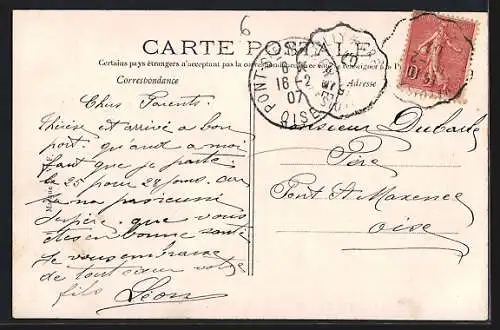 6
CARTE POSTALE
Certains pays étrangers n'acceptent pas la correspondance
Correspondance
Adresse
PONT-
16-2
07
OISE
Chers Parents.
Thérèse est arrivé a bon
port, qu'and a moi
faut que je parte
le 25 pour 28 jours. car
sa na pas
j'espère. que vous
êtes en bonne santé
Je vous embrasse
de tout cœur votre
fils Léon
Monsieur
Père
Pont St Maxence
oise